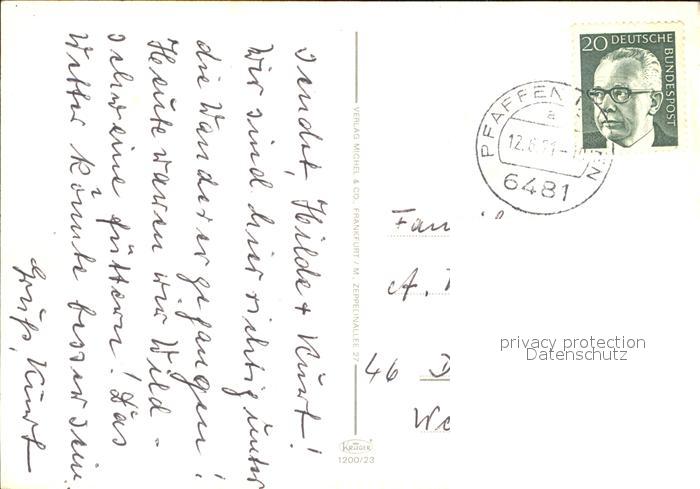 sendet, Hilde + Kurt!
Wir sind hier richtig unter
die Wanderer gegangen!
Heute waren wir Wild-
schweine füttern! Das
Wetter könnte besser sein.
Gruß, Kurt
VERLAG MICHEL & CO., FRANKFURT / M., ZEPPELINALLEE 27
KRÜGER
1200/23
20 DEUTSCHE
BUNDESPOST
PFAFFEN
a
12.8.71
6481
Fam
A.
46 D
We
privacy protection
Datenschutz